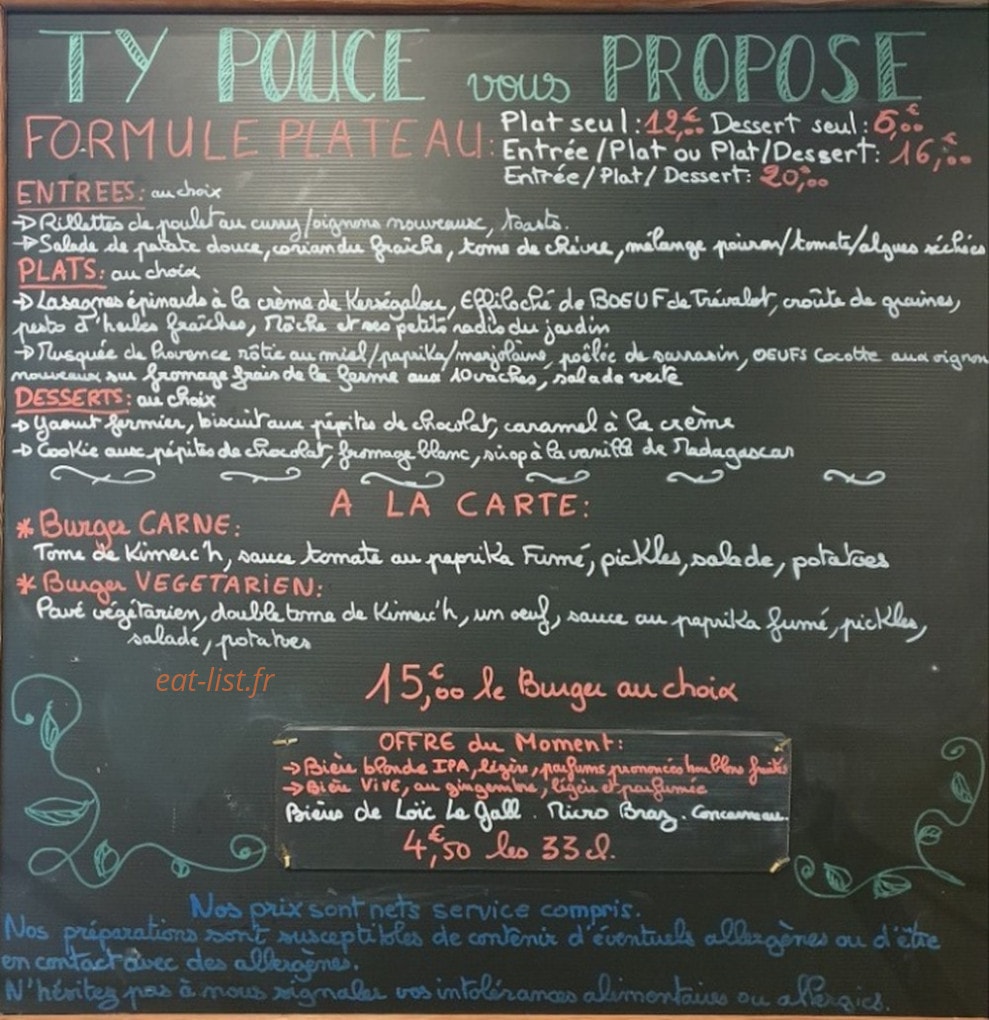 TY POUCE vous PROPOSE
FORMULE PLATEAU:
Plat seul: 12,00€ Dessert seul: 6,00€
Entrée/Plat ou Plat/Dessert: 16,00€
Entrée/Plat/Dessert: 20,00
ENTREES: au choix
→ Rillettes de poulet au curry/oignons nouveaux, toasts.
→ Salade de patate douce, coriandre fraîche, tome de chèvre, mélange poivron/tomate/algues séchées
PLATS: au choix
→ Lasagnes épinards à la crème de Kerségalou, Effiloché de BOEUF de Trévalot, croûte de graines,
pesto d'herbes fraîches, Mâche et ses petits radis du jardin
→ Musquée de Provence rôtie au miel/paprika/marjolaine, poêlée de sarrasin, OEUFS Cocotte aux oignon
nouveaux sur fromage frais de la ferme aux 10 vaches, salade verte
DESSERTS: au choix
→ Yaourt fermier, biscuit aux pépites de chocolat, caramel à la crème
→ Cookie aux pépites de chocolat, fromage blanc, sirop à la vanille de Madagascar
A LA CARTE:
* Burger CARNE:
Tome de Kimerc'h, sauce tomate au paprika Fumé, pickles, salade, potatoes
* Burger VEGETARIEN:
Pavé végétarien, double tome de Kimerc'h, un oeuf, sauce au paprika fumé, pickles,
salade, potatoes
eat-list.fr
15,00€ le Burger au choix
OFFRE du Moment:
→ Bière blonde IPA, légère, parfums prononcés houblons fruités
→ Bière VIVE, au gingembre, légère et parfumée
Bières de Loïc Le Gall. Micro Braz. Concarneau.
4,50€ les 33 cl.
Nos prix sont nets service compris.
Nos préparations sont susceptibles de contenir d'éventuels allergènes ou d'être
en contact avec des allergènes.
N'hésitez pas à nous signaler vos intolérances alimentaires ou allergies.